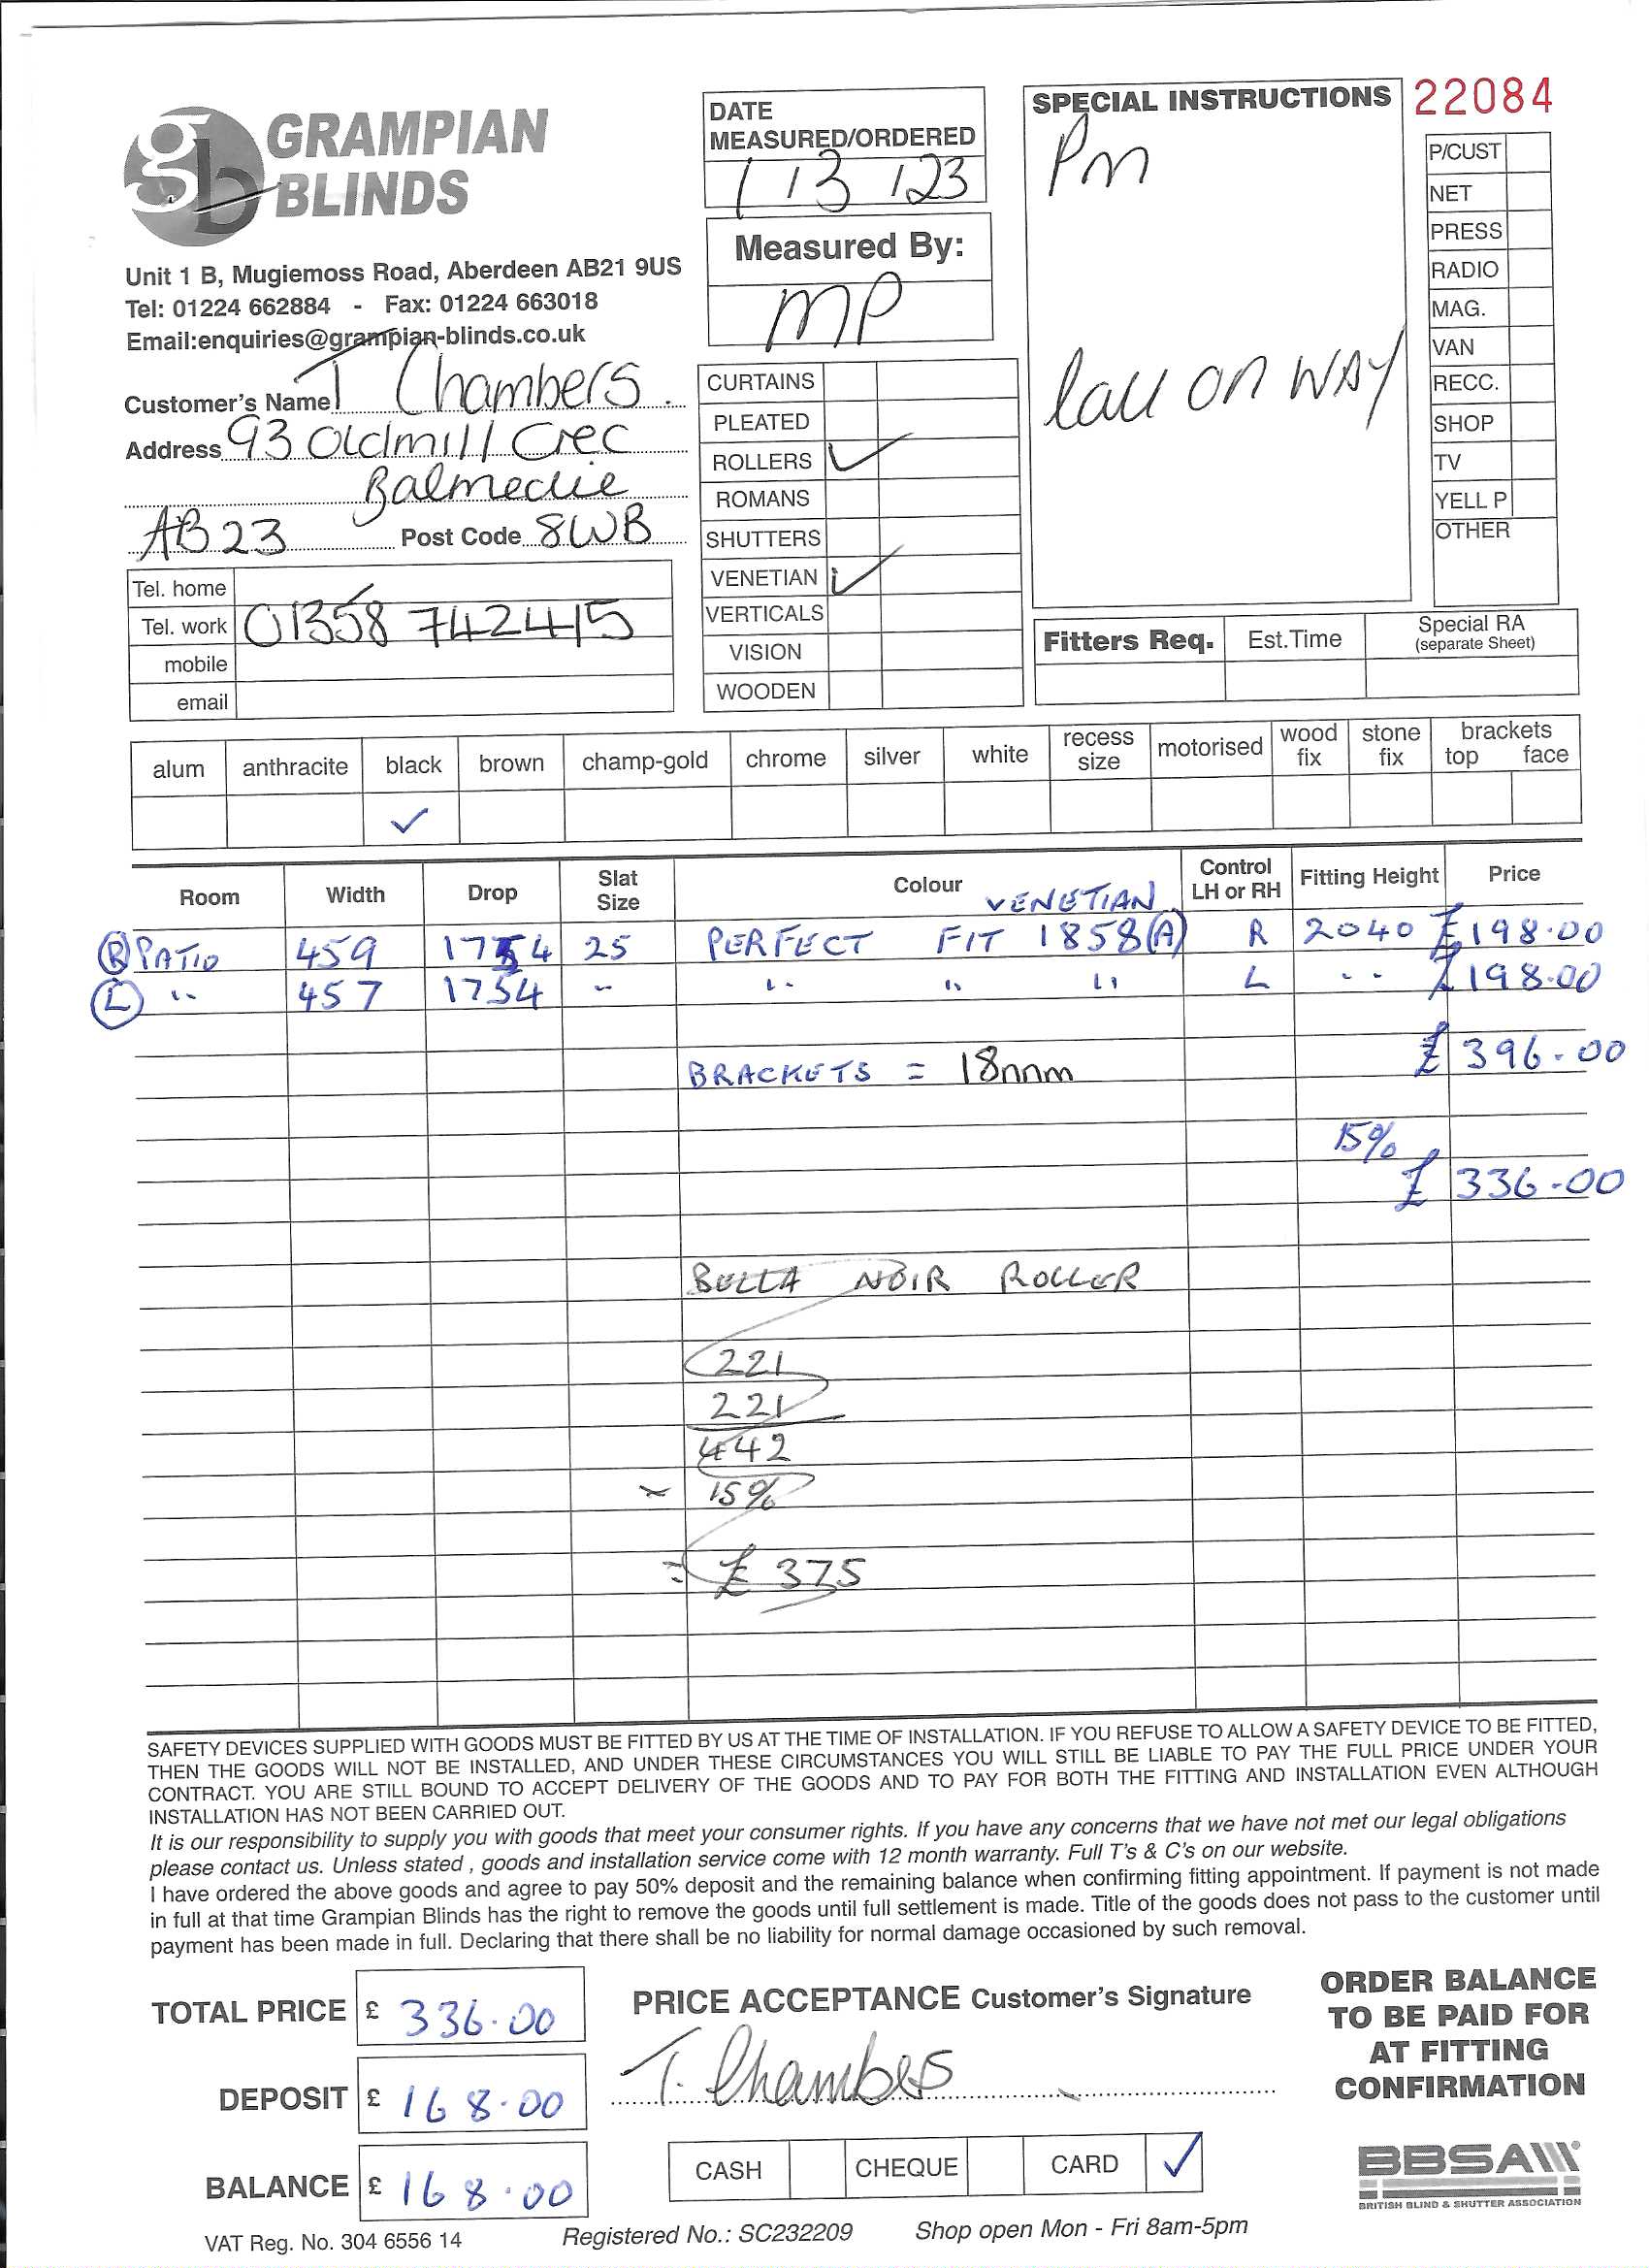 GRAMPIAN
BLINDS
Unit 1 B, Mugiemoss Road, Aberdeen AB21 9US
Tel: 01224 662884 - Fax: 01224 663018
Email:enquiries@grampian-blinds.co.uk
Customer's Name T Chambers.
Address 93 Oldmill Crec
Balmedie
AB23 Post Code 8WB
Tel. home
Tel. work 01358 742415
mobile
email
DATE
MEASURED/ORDERED
1/3/23
Measured By:
MP
CURTAINS
PLEATED
ROLLERS ✓
ROMANS
SHUTTERS
VENETIAN ✓
VERTICALS
VISION
WOODEN
SPECIAL INSTRUCTIONS
Pm
Call on WAY
22084
P/CUST
NET
PRESS
RADIO
MAG.
VAN
RECC.
SHOP
TV
YELL P
OTHER
Fitters Req. Est.Time Special RA
(separate Sheet)
alum anthracite black brown champ-gold chrome silver white recess size motorised wood fix stone fix brackets top face
✓
Room Width Drop Slat Size Colour Control LH or RH Fitting Height Price
VENETIAN
(R) PATIO 459 1754 25 PERFECT FIT 1858(A) R 2040 £198.00
(L) " 457 1754 " " " " L " £198.00
£396.00
BRACKETS = 18mm
15%
£336.00
BELLA NOIR ROLLER
221
221
442
15%
= £375
SAFETY DEVICES SUPPLIED WITH GOODS MUST BE FITTED BY US AT THE TIME OF INSTALLATION. IF YOU REFUSE TO ALLOW A SAFETY DEVICE TO BE FITTED,
THEN THE GOODS WILL NOT BE INSTALLED, AND UNDER THESE CIRCUMSTANCES YOU WILL STILL BE LIABLE TO PAY THE FULL PRICE UNDER YOUR
CONTRACT. YOU ARE STILL BOUND TO ACCEPT DELIVERY OF THE GOODS AND TO PAY FOR BOTH THE FITTING AND INSTALLATION EVEN ALTHOUGH
INSTALLATION HAS NOT BEEN CARRIED OUT.
It is our responsibility to supply you with goods that meet your consumer rights. If you have any concerns that we have not met our legal obligations
please contact us. Unless stated , goods and installation service come with 12 month warranty. Full T's & C's on our website.
I have ordered the above goods and agree to pay 50% deposit and the remaining balance when confirming fitting appointment. If payment is not made
in full at that time Grampian Blinds has the right to remove the goods until full settlement is made. Title of the goods does not pass to the customer until
payment has been made in full. Declaring that there shall be no liability for normal damage occasioned by such removal.
TOTAL PRICE £ 336.00
DEPOSIT £ 168.00
BALANCE £ 168.00
PRICE ACCEPTANCE Customer's Signature
T. Chambers
CASH CHEQUE CARD ✓
ORDER BALANCE
TO BE PAID FOR
AT FITTING
CONFIRMATION
BBSA
BRITISH BLIND & SHUTTER ASSOCIATION
VAT Reg. No. 304 6556 14 Registered No.: SC232209 Shop open Mon - Fri 8am-5pm